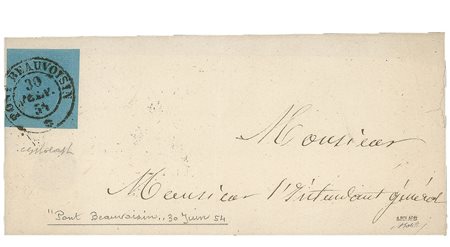 PONT BEAUVOISIN
30
54
Monsieur
Monsieur l'Intendant général
"Pont Beauvoisin", 30 Juin 54